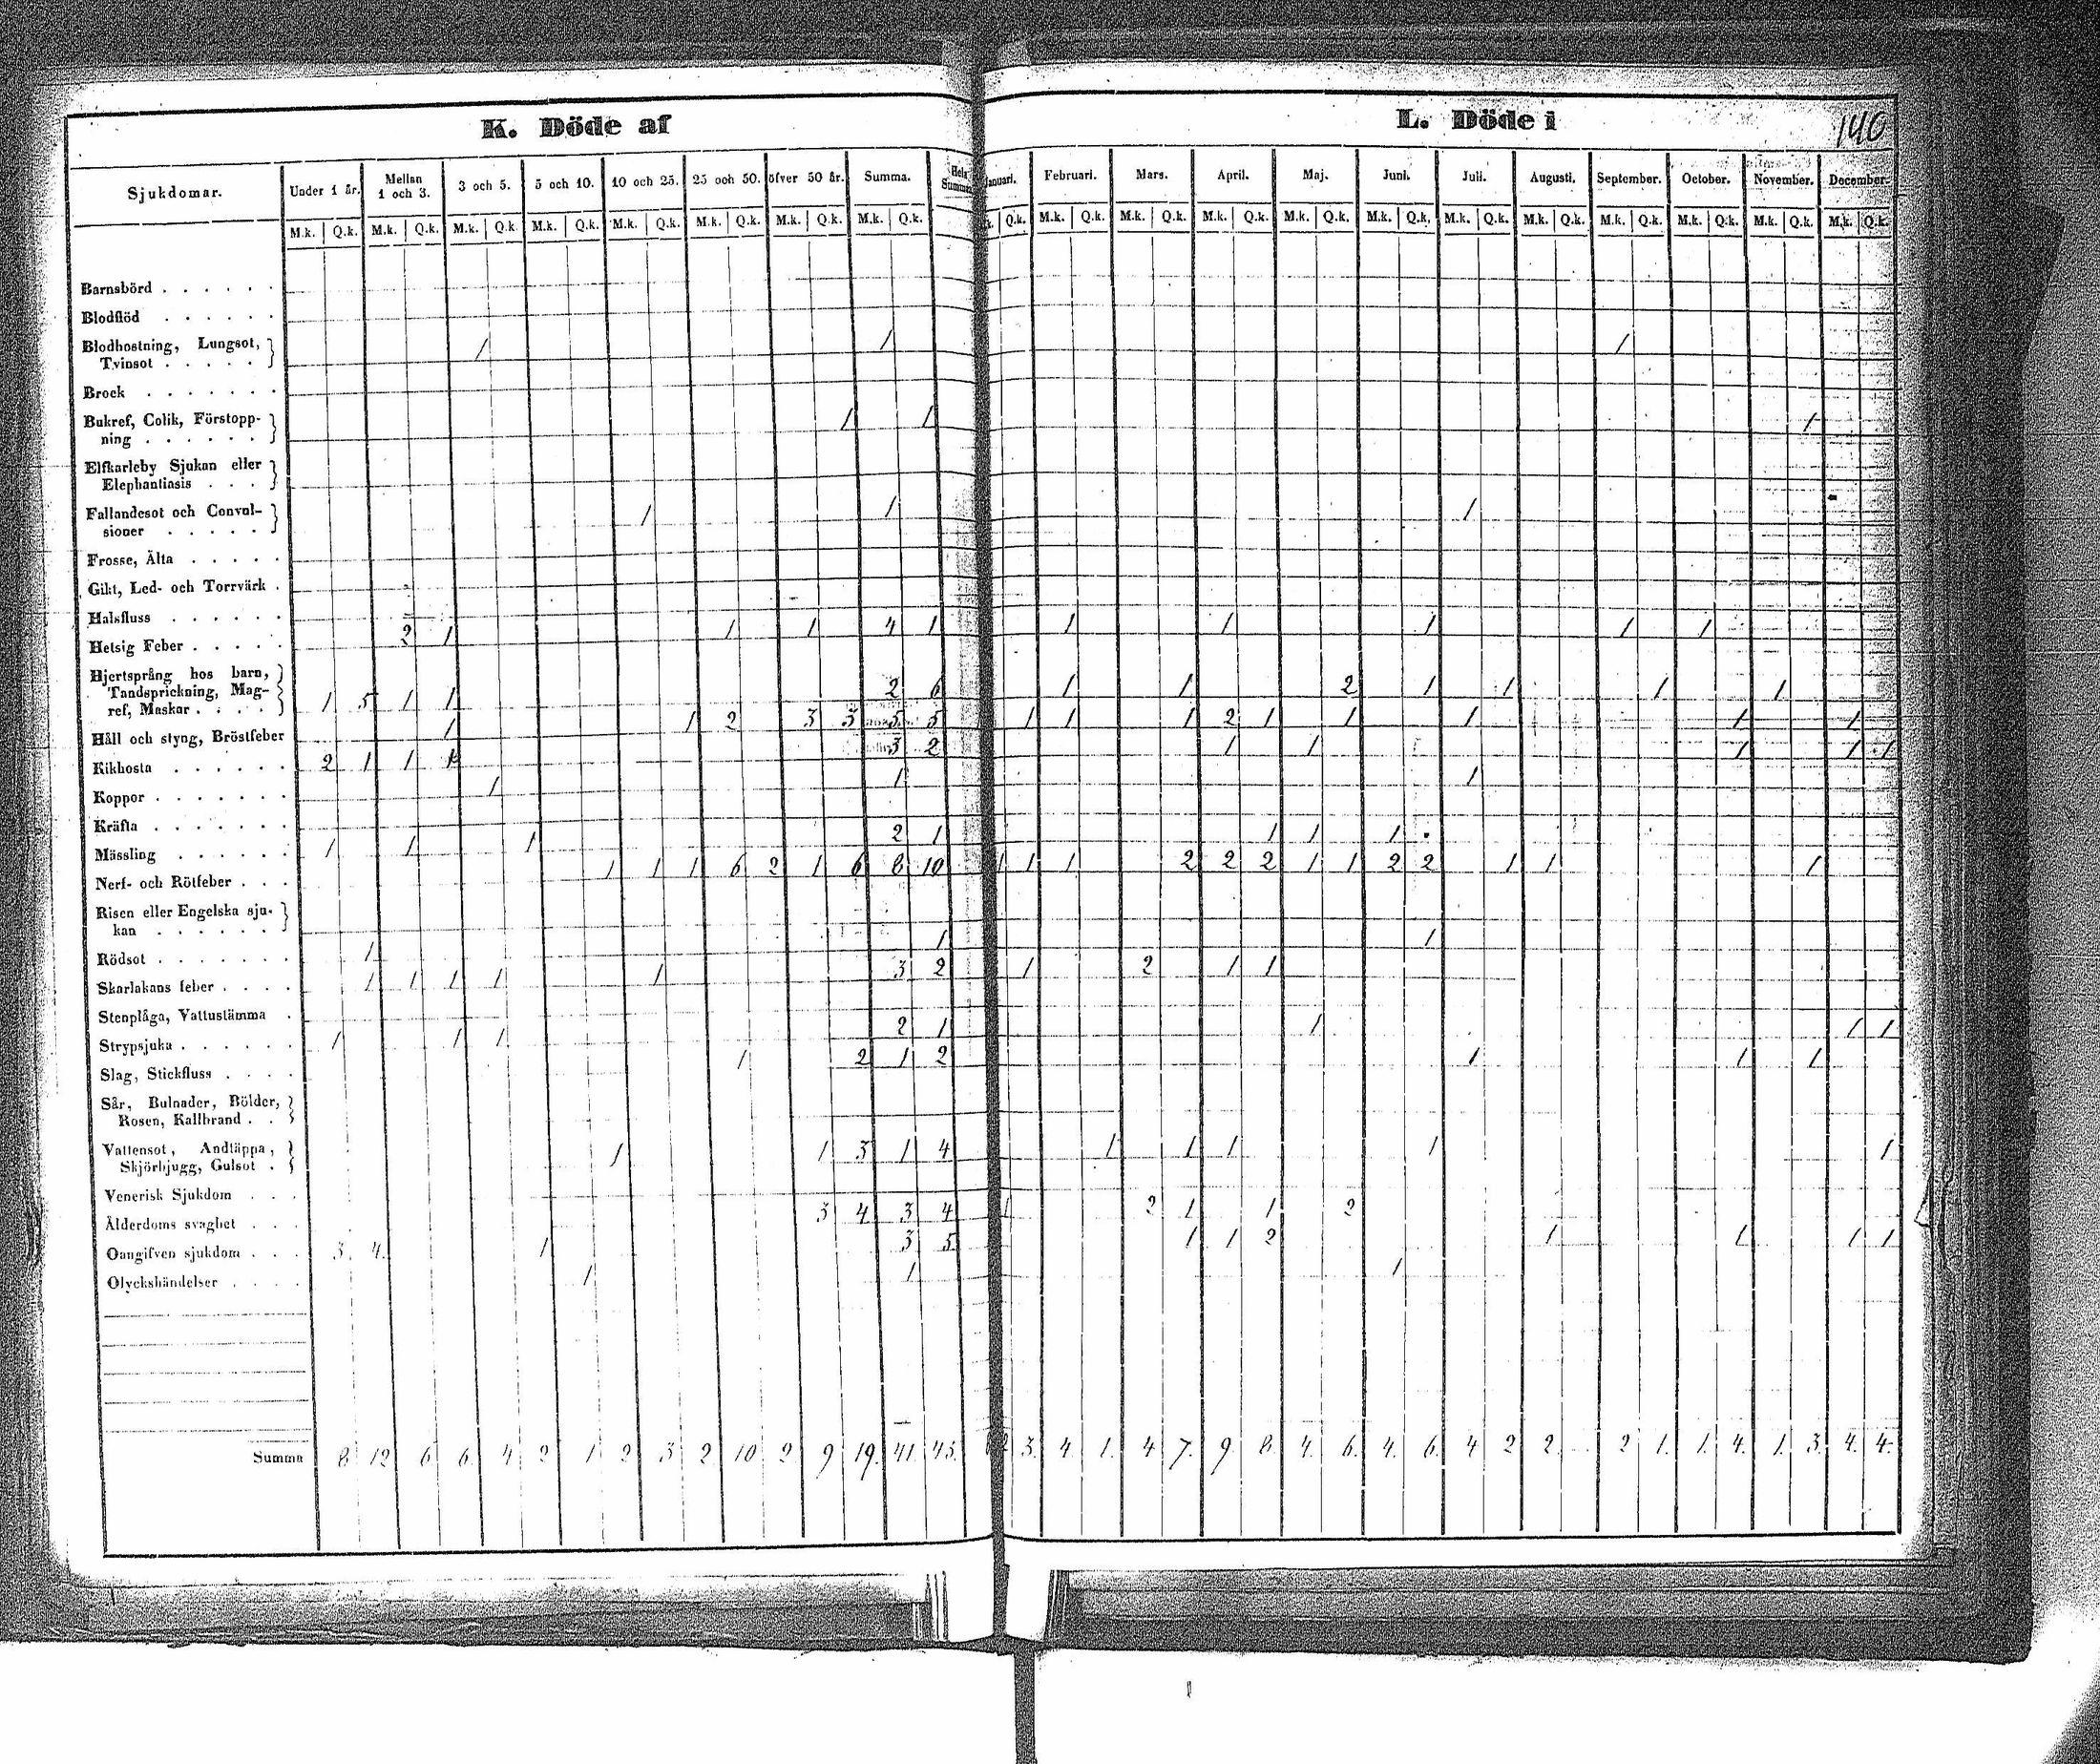 K. Döde af
L. Döde i
140
Sjukdomar.
Under 1 år. Mellan 1 och 3. 3 och 5. 5 och 10. 10 och 25. 25 och 50. öfver 50 år. Summa. Hela Summan Januari. Februari. Mars. April. Maj. Juni. Juli. Augusti. September. October. November. December.
M.k. Q.k. M.k. Q.k. M.k. Q.k. M.k. Q.k. M.k. Q.k. M.k. Q.k. M.k. Q.k. M.k. Q.k. Q.k. M.k. Q.k. M.k. Q.k. M.k. Q.k. M.k. Q.k. M.k. Q.k. M.k. Q.k. M.k. Q.k. M.k. Q.k. M.k. Q.k. M.k. Q.k. M.k. Q.k.
Barnsbörd
Blodflöd
Blodhostning, Lungsot,
Tvinsot 1 1 1
Brock
Bukref, Colik, Förstopp-
ning 1 1 1
Elfkarleby Sjukan eller
Elephantiasis
Fallandesot och Convul-
sioner 1 1 1
Frosse, Älta
Gikt, Led- och Torrvärk
Halsfluss
Hetsig Feber 2 1 1 1 4 1 1 1 1 1 1
Hjertsprång hos barn,
Tandsprickning, Mag-
ref, Maskar 1 5 1 1 2 6 1 1 2 1 1 1 1
Håll och styng, Bröstfeber 1 1 2 3 3 5 5 1 1 1 2 1 1 1 1 1
Kikhosta 2 1 1 1 3 2 1 1 1 1 1
Koppor 1 1 1
Kräfta
Mässling 1 1 1 2 1 1 1 1
Nerf- och Rötfeber 1 1 1 6 2 1 6 8 10 1 1 1 2 2 2 1 1 2 2 1 1 1
Risen eller Engelska sju-
kan
Rödsot 1 1 1
Skarlakans feber 1 1 1 1 1 3 2 1 2 1 1
Stenplåga, Vattustämma
Strypsjuka 1 1 1 2 1 1 1 1
Slag, Stickfluss 1 2 1 2 1 1 1
Sår, Bulnader, Bölder,
Rosen, Kallbrand
Vattensot, Andtäppa,
Skjörbjugg, Gulsot 1 1 3 1 4 1 1 1 1 1
Venerisk Sjukdom
Ålderdoms svaghet 3 4 3 4 1 2 1 1 2
Oangifven sjukdom 3 4 1 3 5 1 1 2 1 1 1 1
Olyckshändelser 1 1 1
Summa 8 12 6 6 4 2 1 2 3 2 10 2 9 19. 41 43. 2 3. 4 1. 4 7. 9 8 4 6. 4. 6. 4 2 2 2 1. 1. 4. 1. 3. 4. 4.